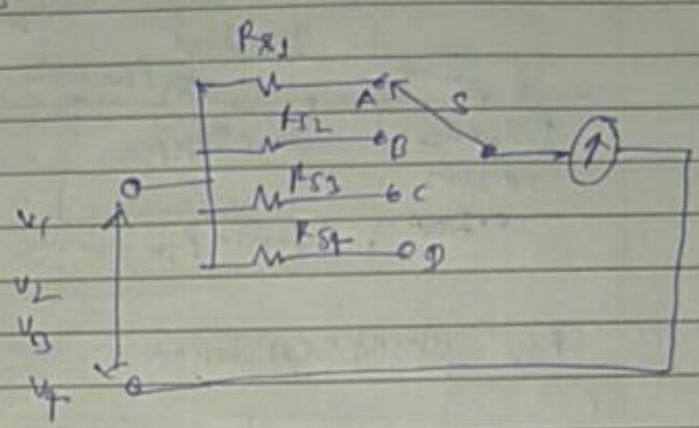 Rs1
A S
Rs2
B
Rs3 C
V1
Rs4 D
V2
V3
V4